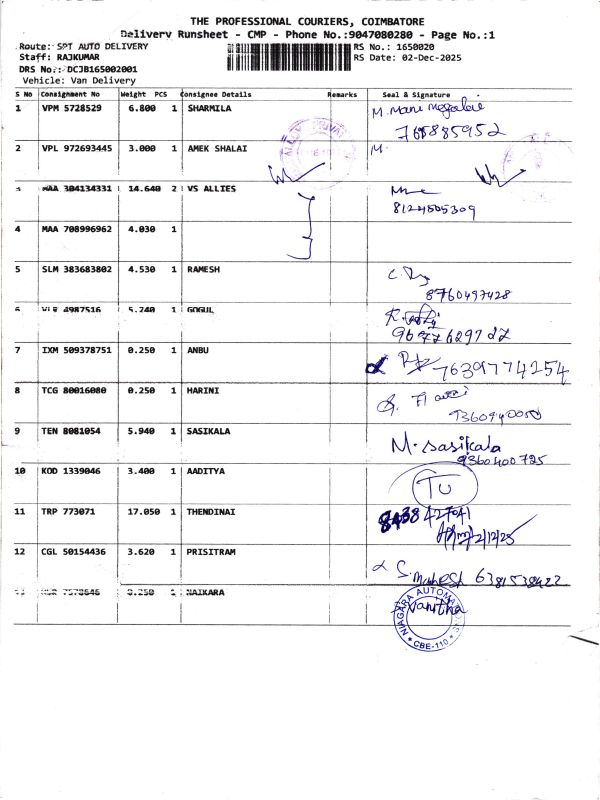 THE PROFESSIONAL COURIERS, COIMBATORE
Delivery Runsheet - CMP - Phone No.:9047080280 - Page No.:1
Route: SPT AUTO DELIVERY RS No.: 1650020
Staff: RAJKUMAR RS Date: 02-Dec-2025
DRS No.: DCJB165002001
Vehicle: Van Delivery
S No Consignment No Weight PCS Consignee Details Remarks Seal & Signature
1 VPM 5728529 6.800 1 SHARMILA
765885952
2 VPL 972693445 3.000 1 AMEK SHALAI M.
3 MAA 304134331 14.640 2 VS ALLIES
8124505309
4 MAA 708996962 4.030 1
5 SLM 383683802 4.530 1 RAMESH
8760497428
6 4987516 5.240 1 GOGUL
7 IXM 509378751 0.250 1 ANBU 7639774254
8 TCG 80016080 0.250 1 HARINI
9 TEN 8081054 5.940 1 SASIKALA M. Sasikala
9360400725
10 KOD 1339046 3.400 1 AADITYA
11 TRP 773071 17.050 1 THENDINAI 8438427041
2/12/25
12 CGL 50154436 3.620 1 PRISITRAM
S. Mahesh
13 7578646 0.250 1 NAIKARA Vanitha
NIAGARA AUTOMA
CBE-110